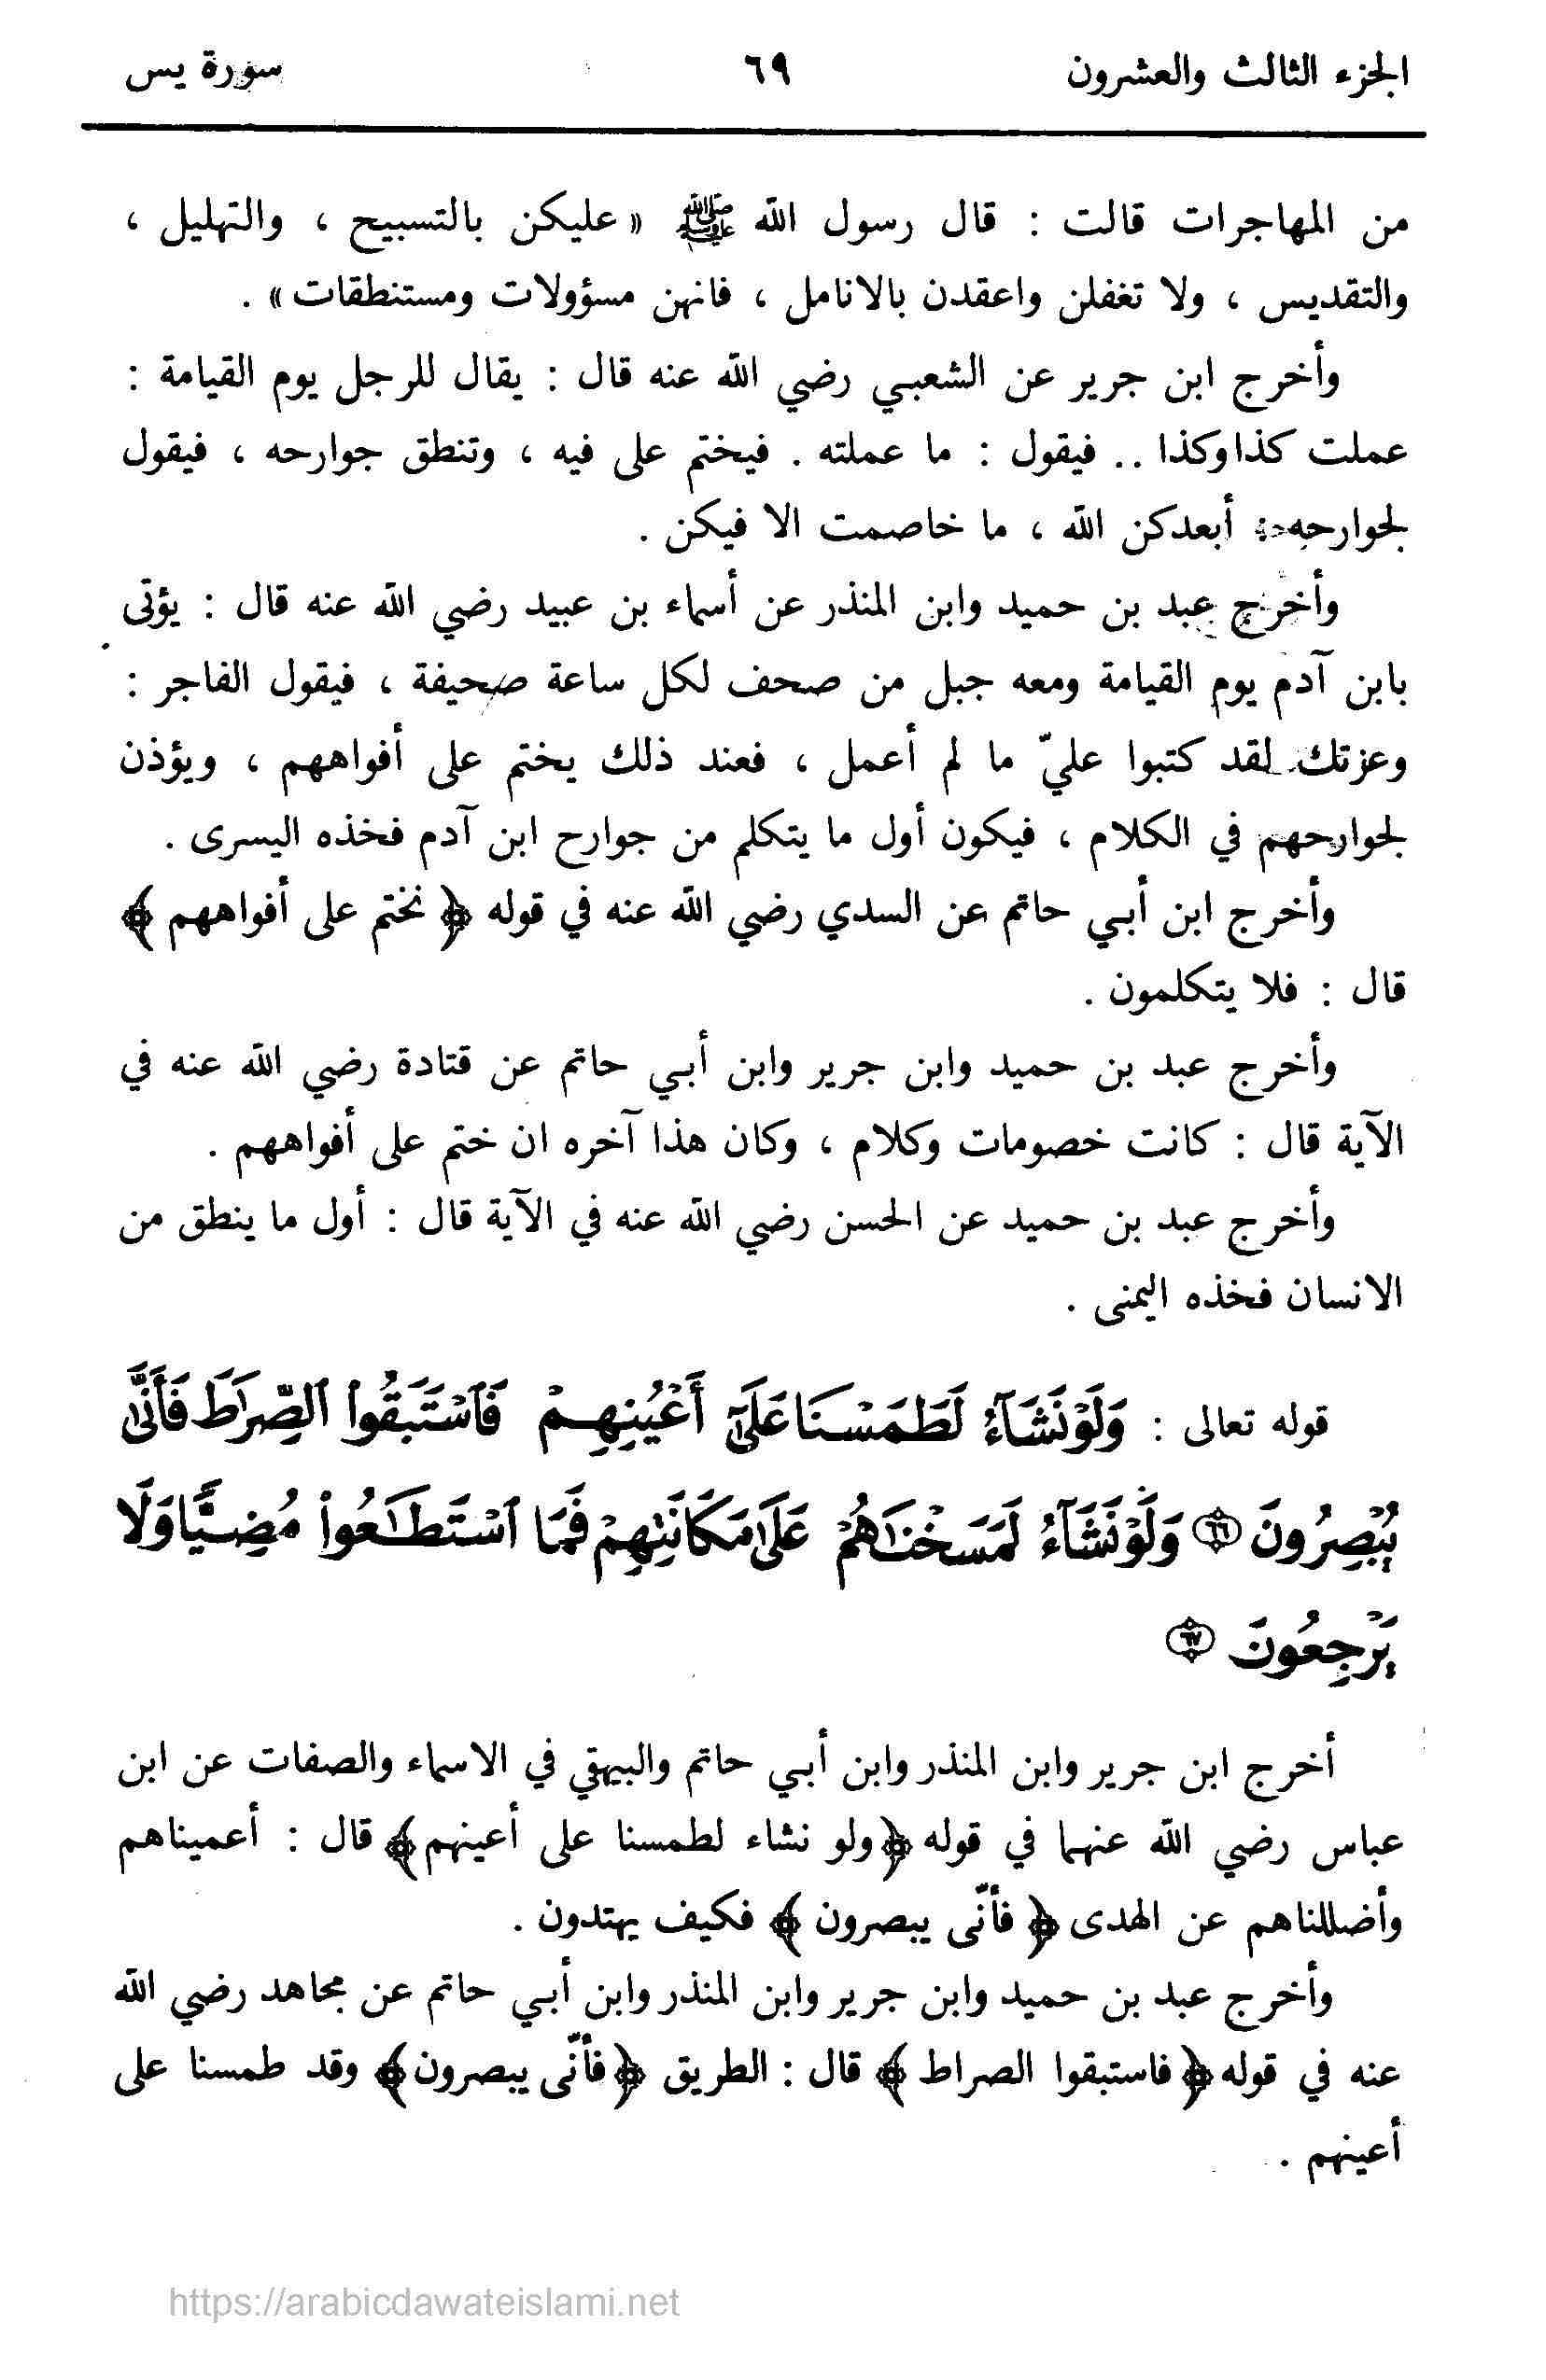 الجزء الثالث والعشرون ٦٩ سورة يس
من المهاجرات قالت : قال رسول الله ﷺ « عليكن بالتسبيح ، والتهليل ،
والتقديس ، ولا تغفلن واعقدن بالانامل ، فانهن مسؤولات ومستنطقات » .
وأخرج ابن جرير عن الشعبي رضي الله عنه قال : يقال للرجل يوم القيامة :
عملت كذا وكذا .. فيقول : ما عملته . فيختم على فيه ، وتنطق جوارحه ، فيقول
لجوارحه : أبعدكن الله ، ما خاصمت الا فيكن .
وأخرج عبد بن حميد وابن المنذر عن أسماء بن عبيد رضي الله عنه قال : يؤتى
بابن آدم يوم القيامة ومعه جبل من صحف لكل ساعة صحيفة ، فيقول الفاجر :
وعزتك لقد كتبوا عليّ ما لم أعمل ، فعند ذلك يختم على أفواههم ، ويؤذن
لجوارحهم في الكلام ، فيكون أول ما يتكلم من جوارح ابن آدم فخذه اليسرى .
وأخرج ابن أبي حاتم عن السدي رضي الله عنه في قوله ﴿ نختم على أفواههم ﴾
قال : فلا يتكلمون .
وأخرج عبد بن حميد وابن جرير وابن أبي حاتم عن قتادة رضي الله عنه في
الآية قال : كانت خصومات وكلام ، وكان هذا آخره ان ختم على أفواههم .
وأخرج عبد بن حميد عن الحسن رضي الله عنه في الآية قال : أول ما ينطق من
الانسان فخذه اليمنى .
قوله تعالى : وَلَوْ نَشَآءُ لَطَمَسْنَا عَلَىٰٓ أَعْيُنِهِمْ فَٱسْتَبَقُوا۟ ٱلصِّرَٰطَ فَأَنَّىٰ
يُبْصِرُونَ ٦٦ وَلَوْ نَشَآءُ لَمَسَخْنَٰهُمْ عَلَىٰ مَكَانَتِهِمْ فَمَا ٱسْتَطَٰعُوا۟ مُضِيًّا وَلَا
يَرْجِعُونَ ٦٧
أخرج ابن جرير وابن المنذر وابن أبي حاتم والبيهقي في الاسماء والصفات عن ابن
عباس رضي الله عنهما في قوله ﴿ولو نشاء لطمسنا على أعينهم﴾ قال : أعميناهم
وأضللناهم عن الهدى ﴿ فأنّى يبصرون ﴾ فكيف يهتدون .
وأخرج عبد بن حميد وابن جرير وابن المنذر وابن أبي حاتم عن مجاهد رضي الله
عنه في قوله ﴿ فاستبقوا الصراط ﴾ قال : الطريق ﴿فأنّى يبصرون﴾ وقد طمسنا على
أعينهم .
https://arabicdawateislami.net